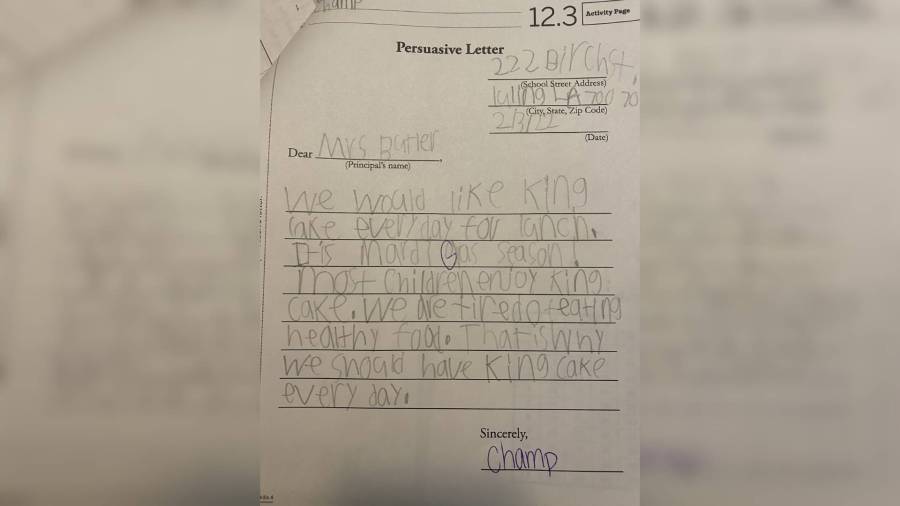 Champ
12.3 Activity Page
Persuasive Letter
222 Birch st,
(School Street Address)
luling LA 700 70
(City, State, Zip Code)
2/3/22
(Date)
Dear Mrs Butler,
(Principal's name)
We would like King
cake everyday for lunch.
It is Mardi Gas season.
most children enjoy King
cake. We are tired of eating
healthy food. That is why
we should have King cake
every day.
Sincerely,
Champ